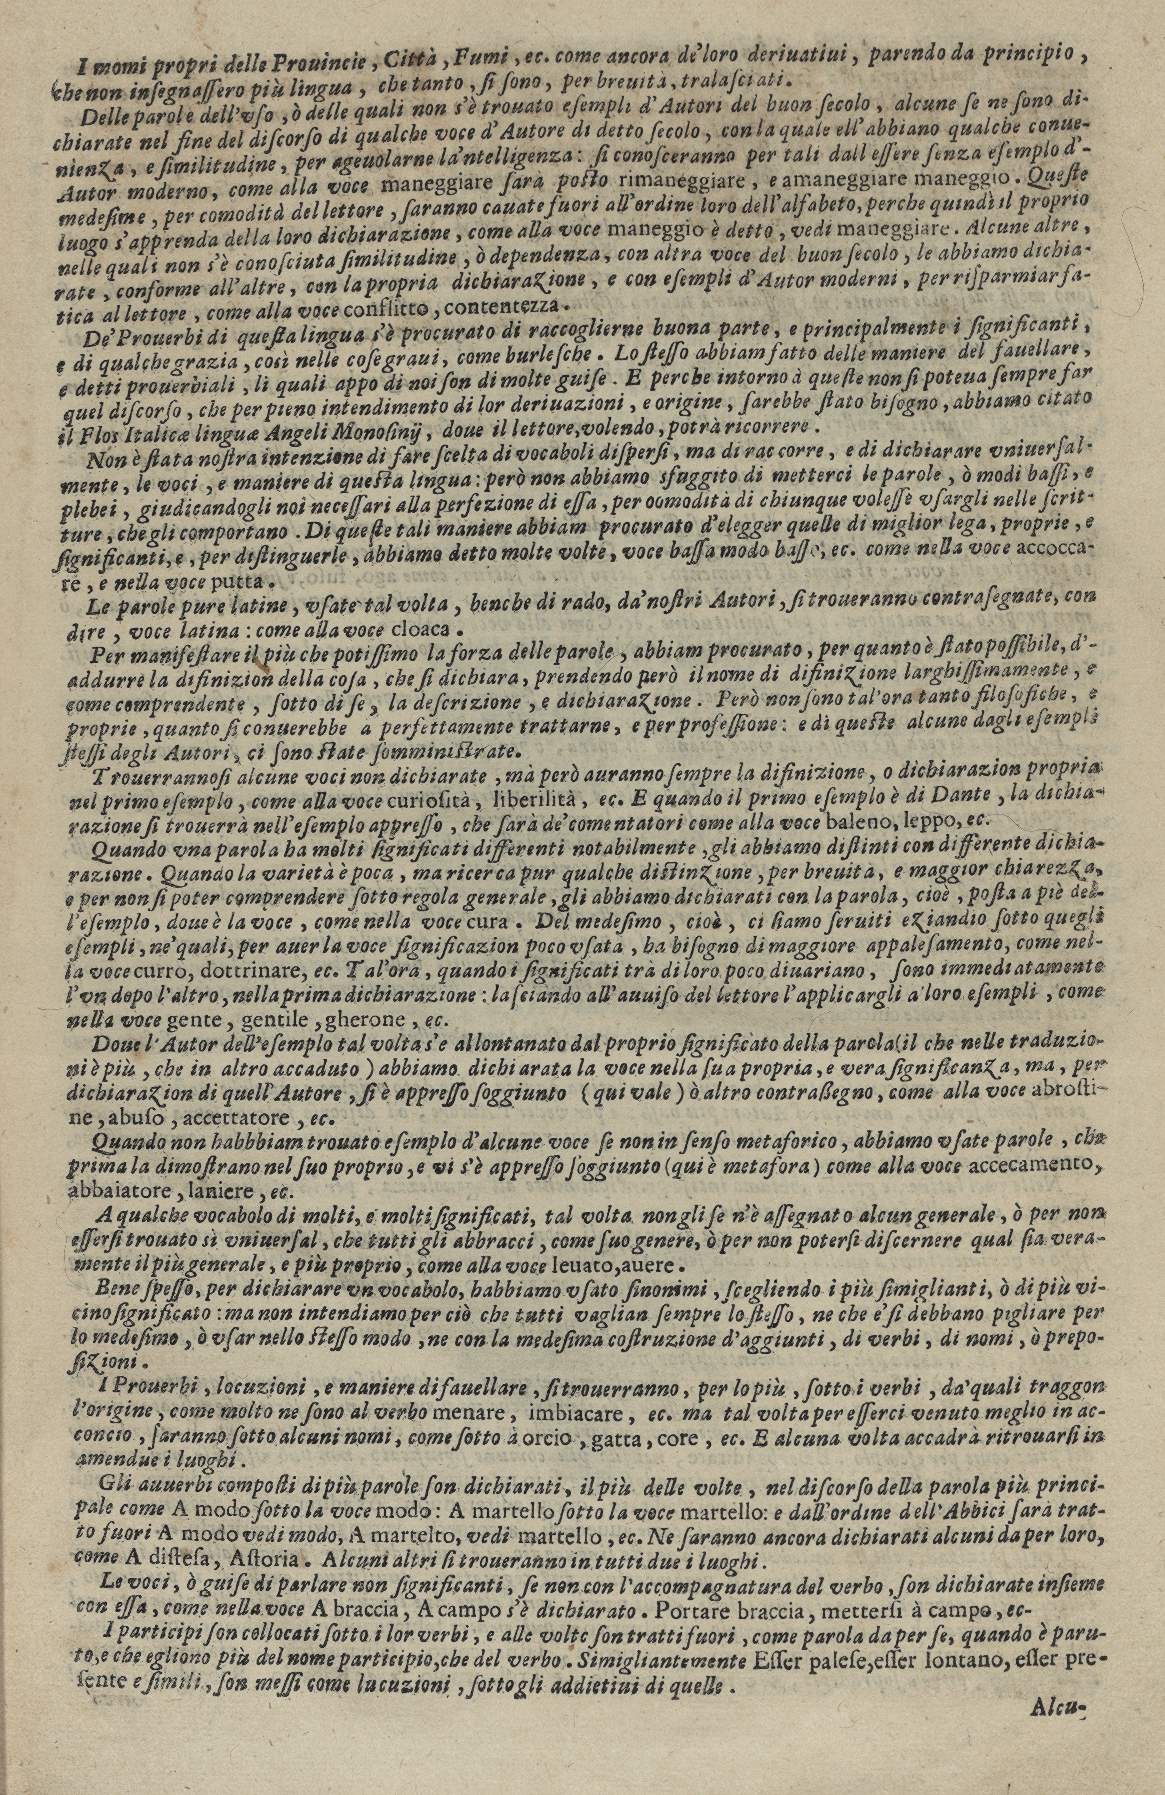 I momi propri delle Prouincie, Città, Fumi, ec. come ancora de'loro deriuatiui, parendo da principio,
che non insegnassero più lingua, che tanto, si sono, per breuità, tralasciati.
Delle parole dell'vso, ò delle quali non s'è trouato esempli d'Autori del buon secolo, alcune se ne sono di-
chiarate nel fine del discorso di qualche voce d'Autore di detto secolo, con la quale ell'abbiano qualche conue-
nienza, e similitudine, per ageuolarne la'ntelligenza: si conosceranno per tali dall essere senza esemplo d'-
Autor moderno, come alla voce maneggiare sarà posto rimaneggiare, e amaneggiare maneggio. Queste
medesime, per comodità del lettore, saranno cauate fuori all'ordine loro dell'alfabeto, perche quindi il proprio
luogo s'apprenda della loro dichiarazione, come alla voce maneggio è detto, vedi maneggiare. Alcune altre,
nelle quali non s'è conosciuta similitudine, ò dependenza, con altra voce del buon secolo, le abbiamo dichia-
rate, conforme all'altre, con la propria dichiarazione, e con esempli d'Autor moderni, per risparmiar fa-
tica al lettore, come alla voce conflitto, contentezza.
De' Prouerbi di questa lingua s'è procurato di raccoglierne buona parte, e principalmente i significanti,
e di qualche grazia, così nelle cose graui, come burlesche. Lo stesso abbiam fatto delle maniere del fauellare,
e detti prouerbiali, li quali appo di noi son di molte guise. E perche intorno à queste non si poteua sempre far
quel discorso, che per pieno intendimento di lor deriuazioni, e origine, sarebbe stato bisogno, abbiamo citato
il Flos Italicæ linguæ Angeli Monosinij, doue il lettore, volendo, potrà ricorrere.
Non è stata nostra intenzione di fare scelta di vocaboli dispersi, ma di rac corre, e di dichiarare vniuersal-
mente, le voci, e maniere di questa lingua: però non abbiamo sfuggito di metterci le parole, ò modi bassi, e
plebei, giudicandogli noi necessari alla perfezione di essa, per comodità di chiunque volesse vsargli nelle scrit-
ture, che gli comportano. Di queste tali maniere abbiam procurato d'elegger quelle di miglior lega, proprie, e
significanti, e, per distinguerle, abbiamo detto molte volte, voce bassa modo basso, ec. come nella voce accocca-
re, e nella voce putta.
Le parole pure latine, vsate tal volta, benche di rado, da'nostri Autori, si troueranno contrasegnate, con
dire, voce latina: come alla voce cloaca.
Per manifestare il più che potissimo la forza delle parole, abbiam procurato, per quanto è stato possibile, d'-
addurre la difinizion della cosa, che si dichiara, prendendo però il nome di difinizione larghissimamente, e
come comprendente, sotto di se, la descrizione, e dichiarazione. Però non sono tal'ora tanto filosofiche, e
proprie, quanto si conuerebbe a perfettamente trattarne, e per professione: e di queste alcune dagli esempli
stessi degli Autori, ci sono state somministrate.
Trouerrannosi alcune voci non dichiarate, mà però auranno sempre la difinizione, o dichiarazion propria
nel primo esemplo, come alla voce curiosità, liberilità, ec. E quando il primo esemplo è di Dante, la dichia-
razione si trouerrà nell'esemplo appresso, che sarà de'comentatori come alla voce baleno, leppo, ec.
Quando vna parola ha molti significati differenti notabilmente, gli abbiamo distinti con differente dichia-
razione. Quando la varietà è poca, ma ricerca pur qualche distinzione, per breuità, e maggior chiarezza,
o per non si poter comprendere sotto regola generale, gli abbiamo dichiarati con la parola, cioè, posta a piè del-
l'esemplo, doue è la voce, come nella voce cura. Del medesimo, cioè, ci siamo seruiti eziandio sotto quegli
esempli, ne'quali, per auer la voce significazion poco vsata, ha bisogno di maggiore appalesamento, come nel-
la voce curro, dottrinare, ec. Tal'ora, quando i significati trà di loro poco diuariano, sono immediatamente
l'vn dopo l'altro, nella prima dichiarazione: lasciando all'auuiso del lettore l'applicargli a'loro esempli, come
nella voce gente, gentile, gherone, ec.
Doue l'Autor dell'esemplo tal volta s'e allontanato dal proprio significato della parola (il che nelle traduzio-
ni è più, che in altro accaduto) abbiamo dichiarata la voce nella sua propria, e vera significanza, ma, per
dichiarazion di quell'Autore, si è appresso soggiunto (qui vale) ò altro contraßegno, come alla voce abrosti-
ne, abuso, accettatore, ec.
Quando non habbbiam trouato esemplo d'alcune voce se non in senso metaforico, abbiamo vsate parole, che
prima la dimostrano nel suo proprio, e vi s'è appresso soggiunto (qui è metafora) come alla voce accecamento,
abbaiatore, laniere, ec.
A qualche vocabolo di molti, e molti significati, tal volta non gli se n'è assegnato alcun generale, ò per non
essersi trouato sì vniuersal, che tutti gli abbracci, come suo genere, ò per non potersi discernere qual sia vera-
mente il più generale, e più proprio, come alla voce leuato, auere.
Bene spesso, per dichiarare vn vocabolo, habbiamo vsato sinonimi, scegliendo i più simiglianti, ò di più vi-
cino significato: ma non intendiamo per ciò che tutti vaglian sempre lo stesso, ne che e'si debbano pigliare per
lo medesimo, ò vsar nello stesso modo, ne con la medesima costruzione d'aggiunti, di verbi, di nomi, ò prepo-
sizioni.
I Prouerbi, locuzioni, e maniere di fauellare, si trouerranno, per lo più, sotto i verbi, da'quali traggon
l'origine, come molto ne sono al verbo menare, imbiacare, ec. ma tal volta per esserci venuto meglio in ac-
concio, saranno sotto alcuni nomi, come sotto à orcio, gatta, core, ec. E alcuna volta accadrà ritrouarsi in
amendue i luoghi.
Gli auuerbi composti di più parole son dichiarati, il più delle volte, nel discorso della parola più princi-
pale come A modo sotto la voce modo: A martello sotto la voce martello: e dall'ordine dell'Abbicì sarà trat-
to fuori A modo vedi modo, A martelto, vedi martello, ec. Ne saranno ancora dichiarati alcuni da per loro,
come A distesa, Astoria. Alcuni altri si troueranno in tutti due i luoghi.
Le voci, ò guise di parlare non significanti, se non con l'accompagnatura del verbo, son dichiarate insieme
con essa, come nella voce A braccia, A campo s'è dichiarato. Portare braccia, mettersi à campo, ec-
I participi son collocati sotto i lor verbi, e alle volte son tratti fuori, come parola da per se, quando è paru-
to, e che egliono più del nome participio, che del verbo. Simigliantemente Esser palese, esser lontano, esser pre-
sente e simili, son messi come lucuzioni, sotto gli addietiui di quelle.
Alcu-